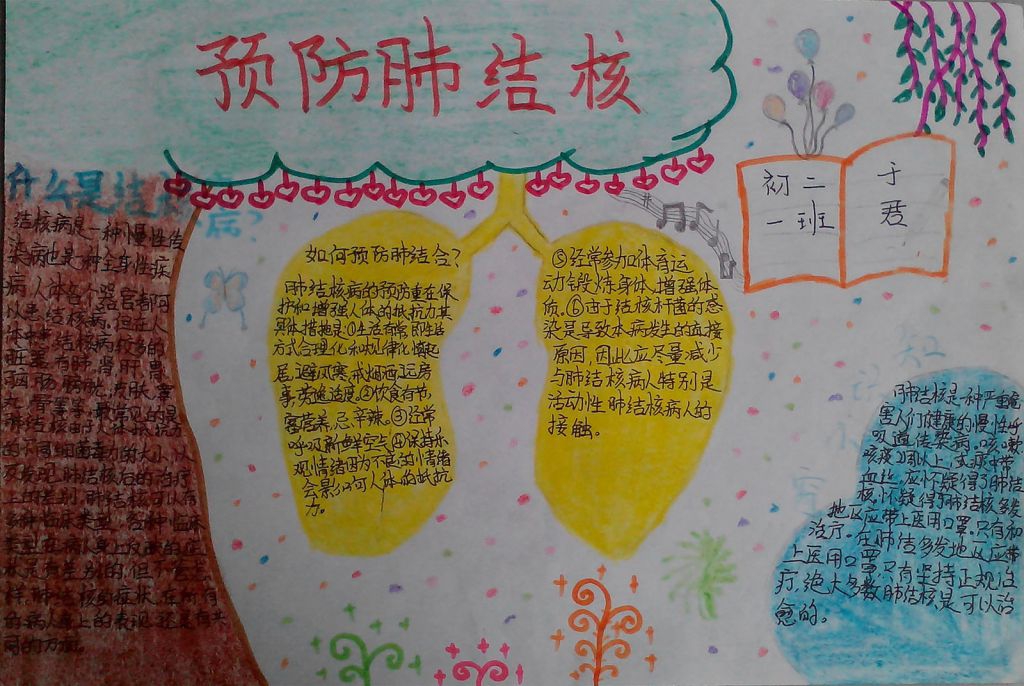 预防肺结核
什么是结
病?
结核病是一种慢性传
染病也是一种全身性疾
病,人体各个器官都可
以患结核病,但在人
体中,结核病较多的
脏器,有肺肾肝胃
脑肠膀胱,皮肤睾
丸、骨等,最常见的是
肺结核由于人体抵抗力
的不同细菌毒力的大小,以
及发现肺结核后的治疗
上的差别,肺结核可以有
多种临床类型,各种临床
类型在病人身上反映的症
状是有差别的,但不管怎
样,肺结核的症状,在所有
的病人身上的表现还是有共
同的方面。
如何预防肺结合?
肺结核病的预防重在保
护和增强人体的抵抗力其
具体措施是:①生活有常,即生活
方式合理化和规律化慎起
居,避风寒,戒烟酒,远房
事,劳逸适度。②饮食有节,
富营养,忌辛辣。③经常
呼吸新鲜空气④保持乐
观情绪因为不良的情绪
会影响人体的抵抗
力。
⑤经常参加体育运
动锻炼身体,增强体
质。⑥由于结核杆菌的感
染是导致本病发生的直接
原因,因此应尽量减少
与肺结核病人特别是
活动性肺结核病人的
接触。
初二
一班
于
君
知
识
小
肺结核是一种严重危
害人们健康的慢性呼
吸道传染病,咳嗽
咳痰2周以上,或痰中带
血丝,应怀疑得了肺结
核,怀疑得了肺结核多发
地区应带上医用口罩,只有积
治疗。在肺结多发地区应带
上医用口罩只有坚持正规治
疗,绝大多数肺结核是可以治
愈的。